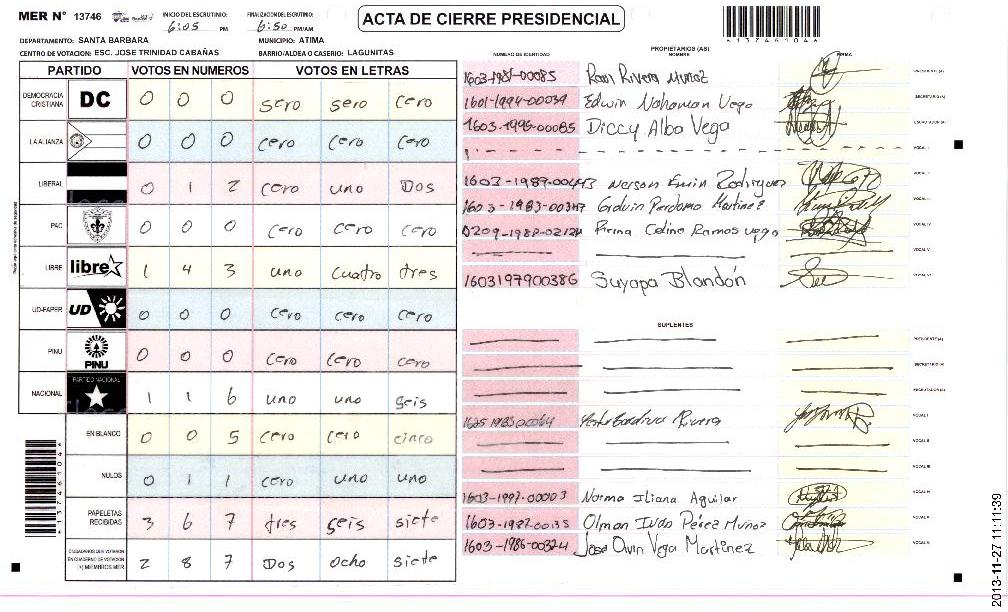 MER N° 13746 INICIO DEL ESCRUTINIO: 6:05 PM FINALIZACION DEL ESCRUTINIO: 6:50 PM/AM
ACTA DE CIERRE PRESIDENCIAL
*1374610 4*
DEPARTAMENTO: SANTA BARBARA MUNICIPIO: ATIMA
CENTRO DE VOTACION: ESC. JOSE TRINIDAD CABAÑAS BARRIO/ALDEA O CASERIO: LAGUNITAS
PARTIDO VOTOS EN NUMEROS VOTOS EN LETRAS
DEMOCRACIA CRISTIANA DC 0 0 0 sero sero cero
LA ALIANZA 0 0 0 cero cero cero
LIBERAL 0 1 2 cero uno Dos
PAC 0 0 0 cero cero cero
LIBRE libre 1 4 3 uno cuatro tres
UD-FAPER UD 0 0 0 cero cero cero
PINU PINU 0 0 0 cero cero cero
NACIONAL PARTIDO NACIONAL 1 1 6 uno uno seis
EN BLANCO 0 0 5 cero cero cinco
NULOS 0 1 1 cero uno uno
PAPELETAS RECIBIDAS 3 6 7 tres seis siete
CIUDADANOS QUE VOTARON EN CUADERNO DE VOTACION (+) MIEMBROS MER 2 8 7 Dos ocho siete
PROPIETARIOS (AS)
NUMERO DE IDENTIDAD NOMBRE FIRMA
1603-1981-00085 Raul Rivera Muñoz PRESIDENTE (A)
1601-1994-00039 Edwin Nahaman Vega SECRETARIO (A)
1603-1996-00085 Diccy Alba Vega ESCRUTADOR (A)
VOCAL I
1603-1989-00443 Nerson Emin Rodriguez VOCAL II
1603-1983-00347 Perdomo Martinez VOCAL III
0209-1988-02124 Celina Ramos vega VOCAL IV
VOCAL V
1603197900386 Suyapa Blandón VOCAL VI
SUPLENTES
PRESIDENTE (A)
SECRETARIO (A)
ESCRUTADOR (A)
Rivera VOCAL I
VOCAL II
VOCAL III
1603-1997-00003 Norma Iliana Aguilar VOCAL IV
1603-1982-00135 Olman Ivdo Pérez Muñoz VOCAL V
1603-1986-00324 Jose Ovin Vega Martinez VOCAL VI
2013-11-27 11:11:39